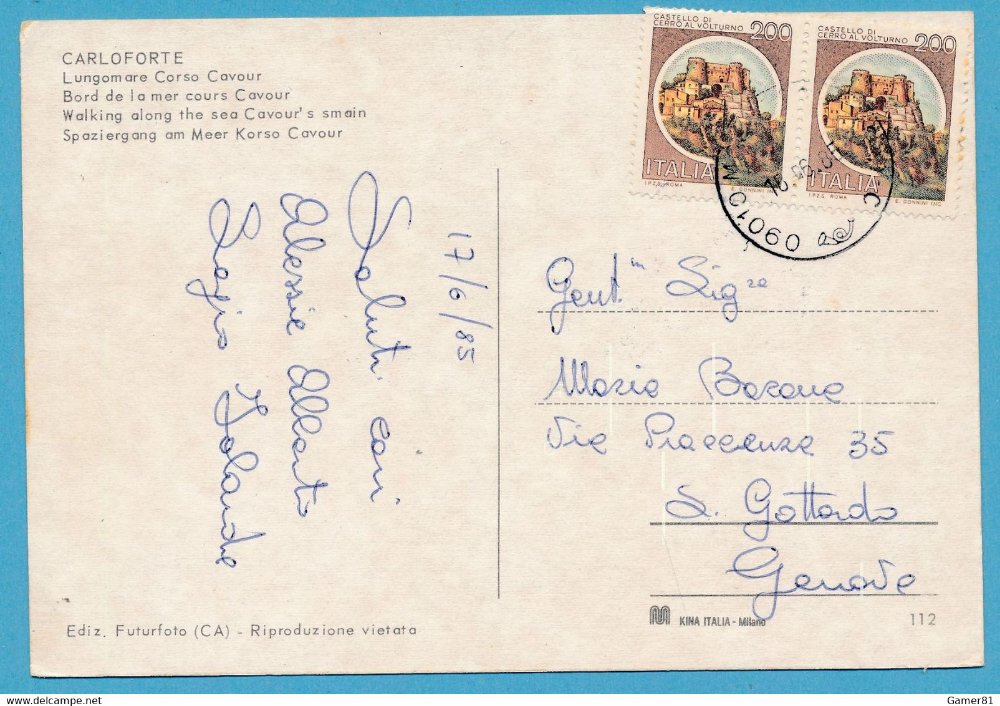 CARLOFORTE
Lungomare Corso Cavour
Bord de la mer cours Cavour
Walking along the sea Cavour's smain
Spaziergang am Meer Korso Cavour
CASTELLO DI
CERRO AL VOLTURNO
200
ITALIA
I.P.Z.S. ROMA
E. DONNINI INC.
CASTELLO DI
CERRO AL VOLTURNO
200
ITALIA
I.P.Z.S. ROMA
E. DONNINI INC.
09010
17/6/85
Saluti cari
Alessia Alberto
Iolanda
Gent.m Sig.ra
Maria
Via Piacenza 35
S. Gottardo
Genova
Ediz. Futurfoto (CA) - Riproduzione vietata
KINA ITALIA - Milano
112
Gamer81